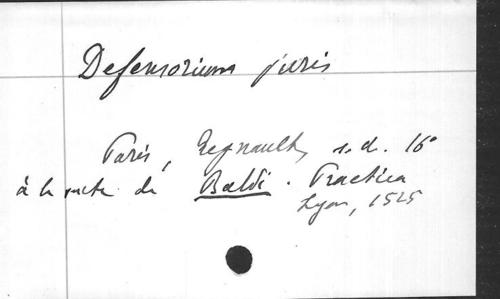 Defensorium juris
Paris, Regnault, s.d. 16°
à la suite de Baldi. Practica
Lyon, 1525